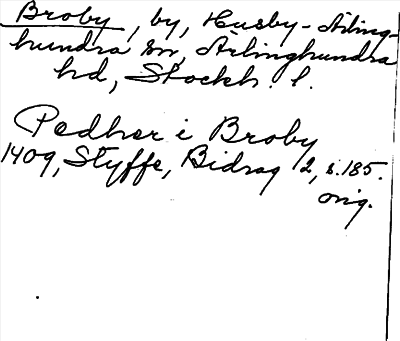 Broby, by, Husby-Ärling-
hundra sn, Ärlinghundra
hd, Stockh. l.
Pedher i Broby
1409, Styffe, Bidrag 2, s. 185.
orig.